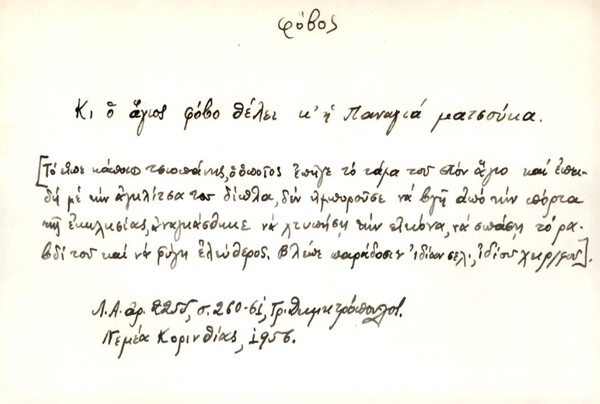 φόβος
Κι ὁ ἅγιος φόβο θέλει κ' ἡ Παναγιά ματσούκα.
[Τό εἶπε κάποιος τσοπάνης, ὁ ὁποῖος ἐπῆγε τό τάμα του στόν ἅγιο καί ἐπει-
δή μέ τήν ἀγκλίτσα του δίπλα, δέν ἠμποροῦσε νά βγῆ ἀπό τήν πόρτα
τῆς ἐκκλησίας, ἀναγκάσθηκε νά χτυπήση τήν εἰκόνα, νά σπάση τό ρα-
βδί του καί νά φύγη ἐλεύθερος. Βλέπε παράδοσιν ἰδίαν σελ., ἰδίου χειρ/φου].
Λ.Α. ἀρ. 2255, σ. 260-61, Γρ. Δημητρόπουλος.
Νεμέα Κορινθίας, 1956.